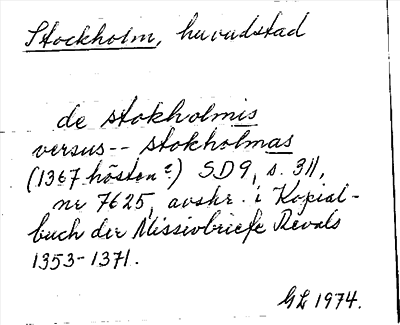 Stockholm, huvudstad
de stokholmis
versus -- stokholmas
(1367 hösten?) SD9, s. 311,
nr 7625, avskr. i Kopial-
buch der Missivbriefe Revals
1353-1371.
GL 1974.